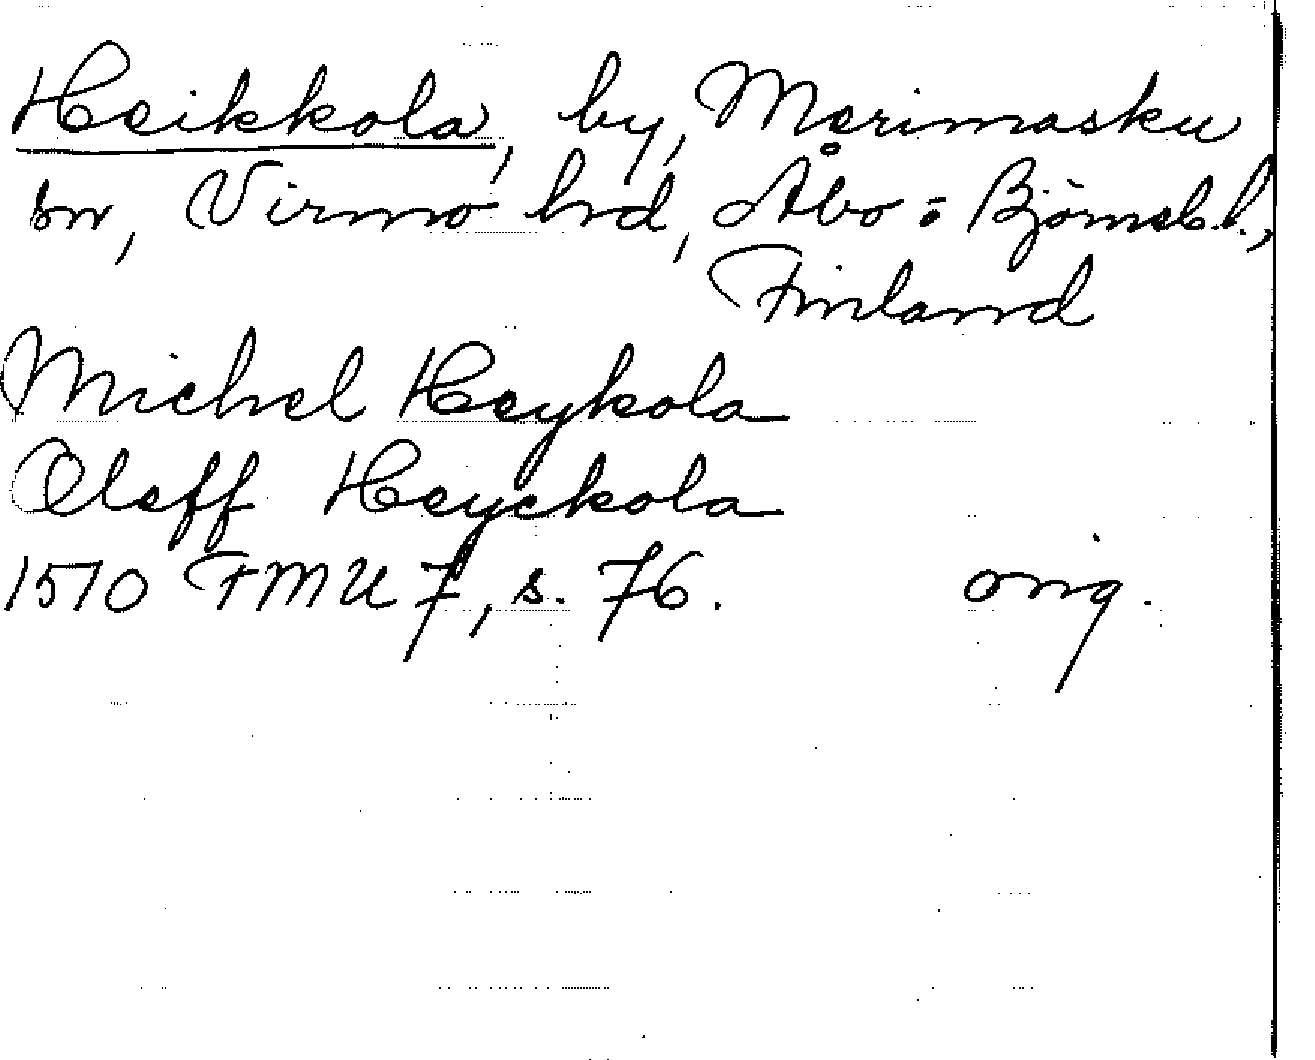 Heikkola, by, Merimasku
sn, Virmo hd, Åbo = Björneb.l.,
Finland
Michel Heykola
Oleff Heyckola
1570 FMU 7, s. 76. orig.